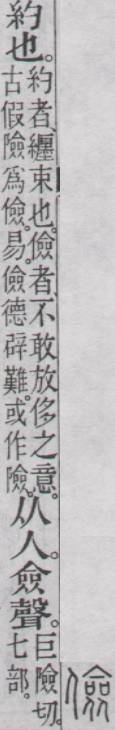 儉
約也。
約者、纏束也。儉者、不敢放侈之意。
古假險爲儉。易。儉德辟難。或作險。
从人。僉聲。
巨險切。
七部。